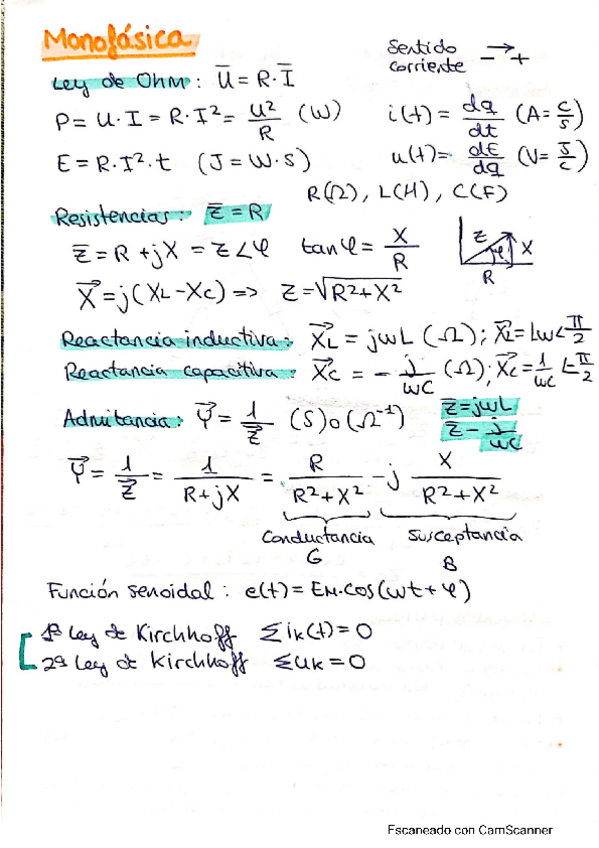 Monofásica
Sentido corriente - → +
Ley de Ohm: U̅ = R·I̅
P = U·I = R·I² = U²/R (W)
i(t) = dq/dt (A = C/s)
E = R·I²·t (J = W·s)
u(t) = dE/dq (V = J/C)
R(Ω), L(H), C(F)
Resistencias: Z̅ = R
Z̅ = R + jX = Z∠φ tanφ = X/R
Z φ X R
X⃗ = j(XL - XC) => Z = √R² + X²
Reactancia inductiva: X⃗L = jωL (Ω); X⃗L = Lω∠π/2
Reactancia capacitiva: X⃗C = - j/ωC (Ω); X⃗C = 1/ωC ∠-π/2
Admitancia: Y⃗ = 1/Z⃗ (S) o (Ω⁻¹)
Z̅ = jωL
Z̅ - j/ωC
Y⃗ = 1/Z⃗ = 1/R+jX = R/R²+X² - j X/R²+X²
Conductancia Susceptancia
G B
Función senoidal: e(t) = EM·cos(ωt + φ)
1ª Ley de Kirchhoff Σik(t) = 0
2ª Ley de Kirchhoff Σuk = 0
Escaneado con CamScanner